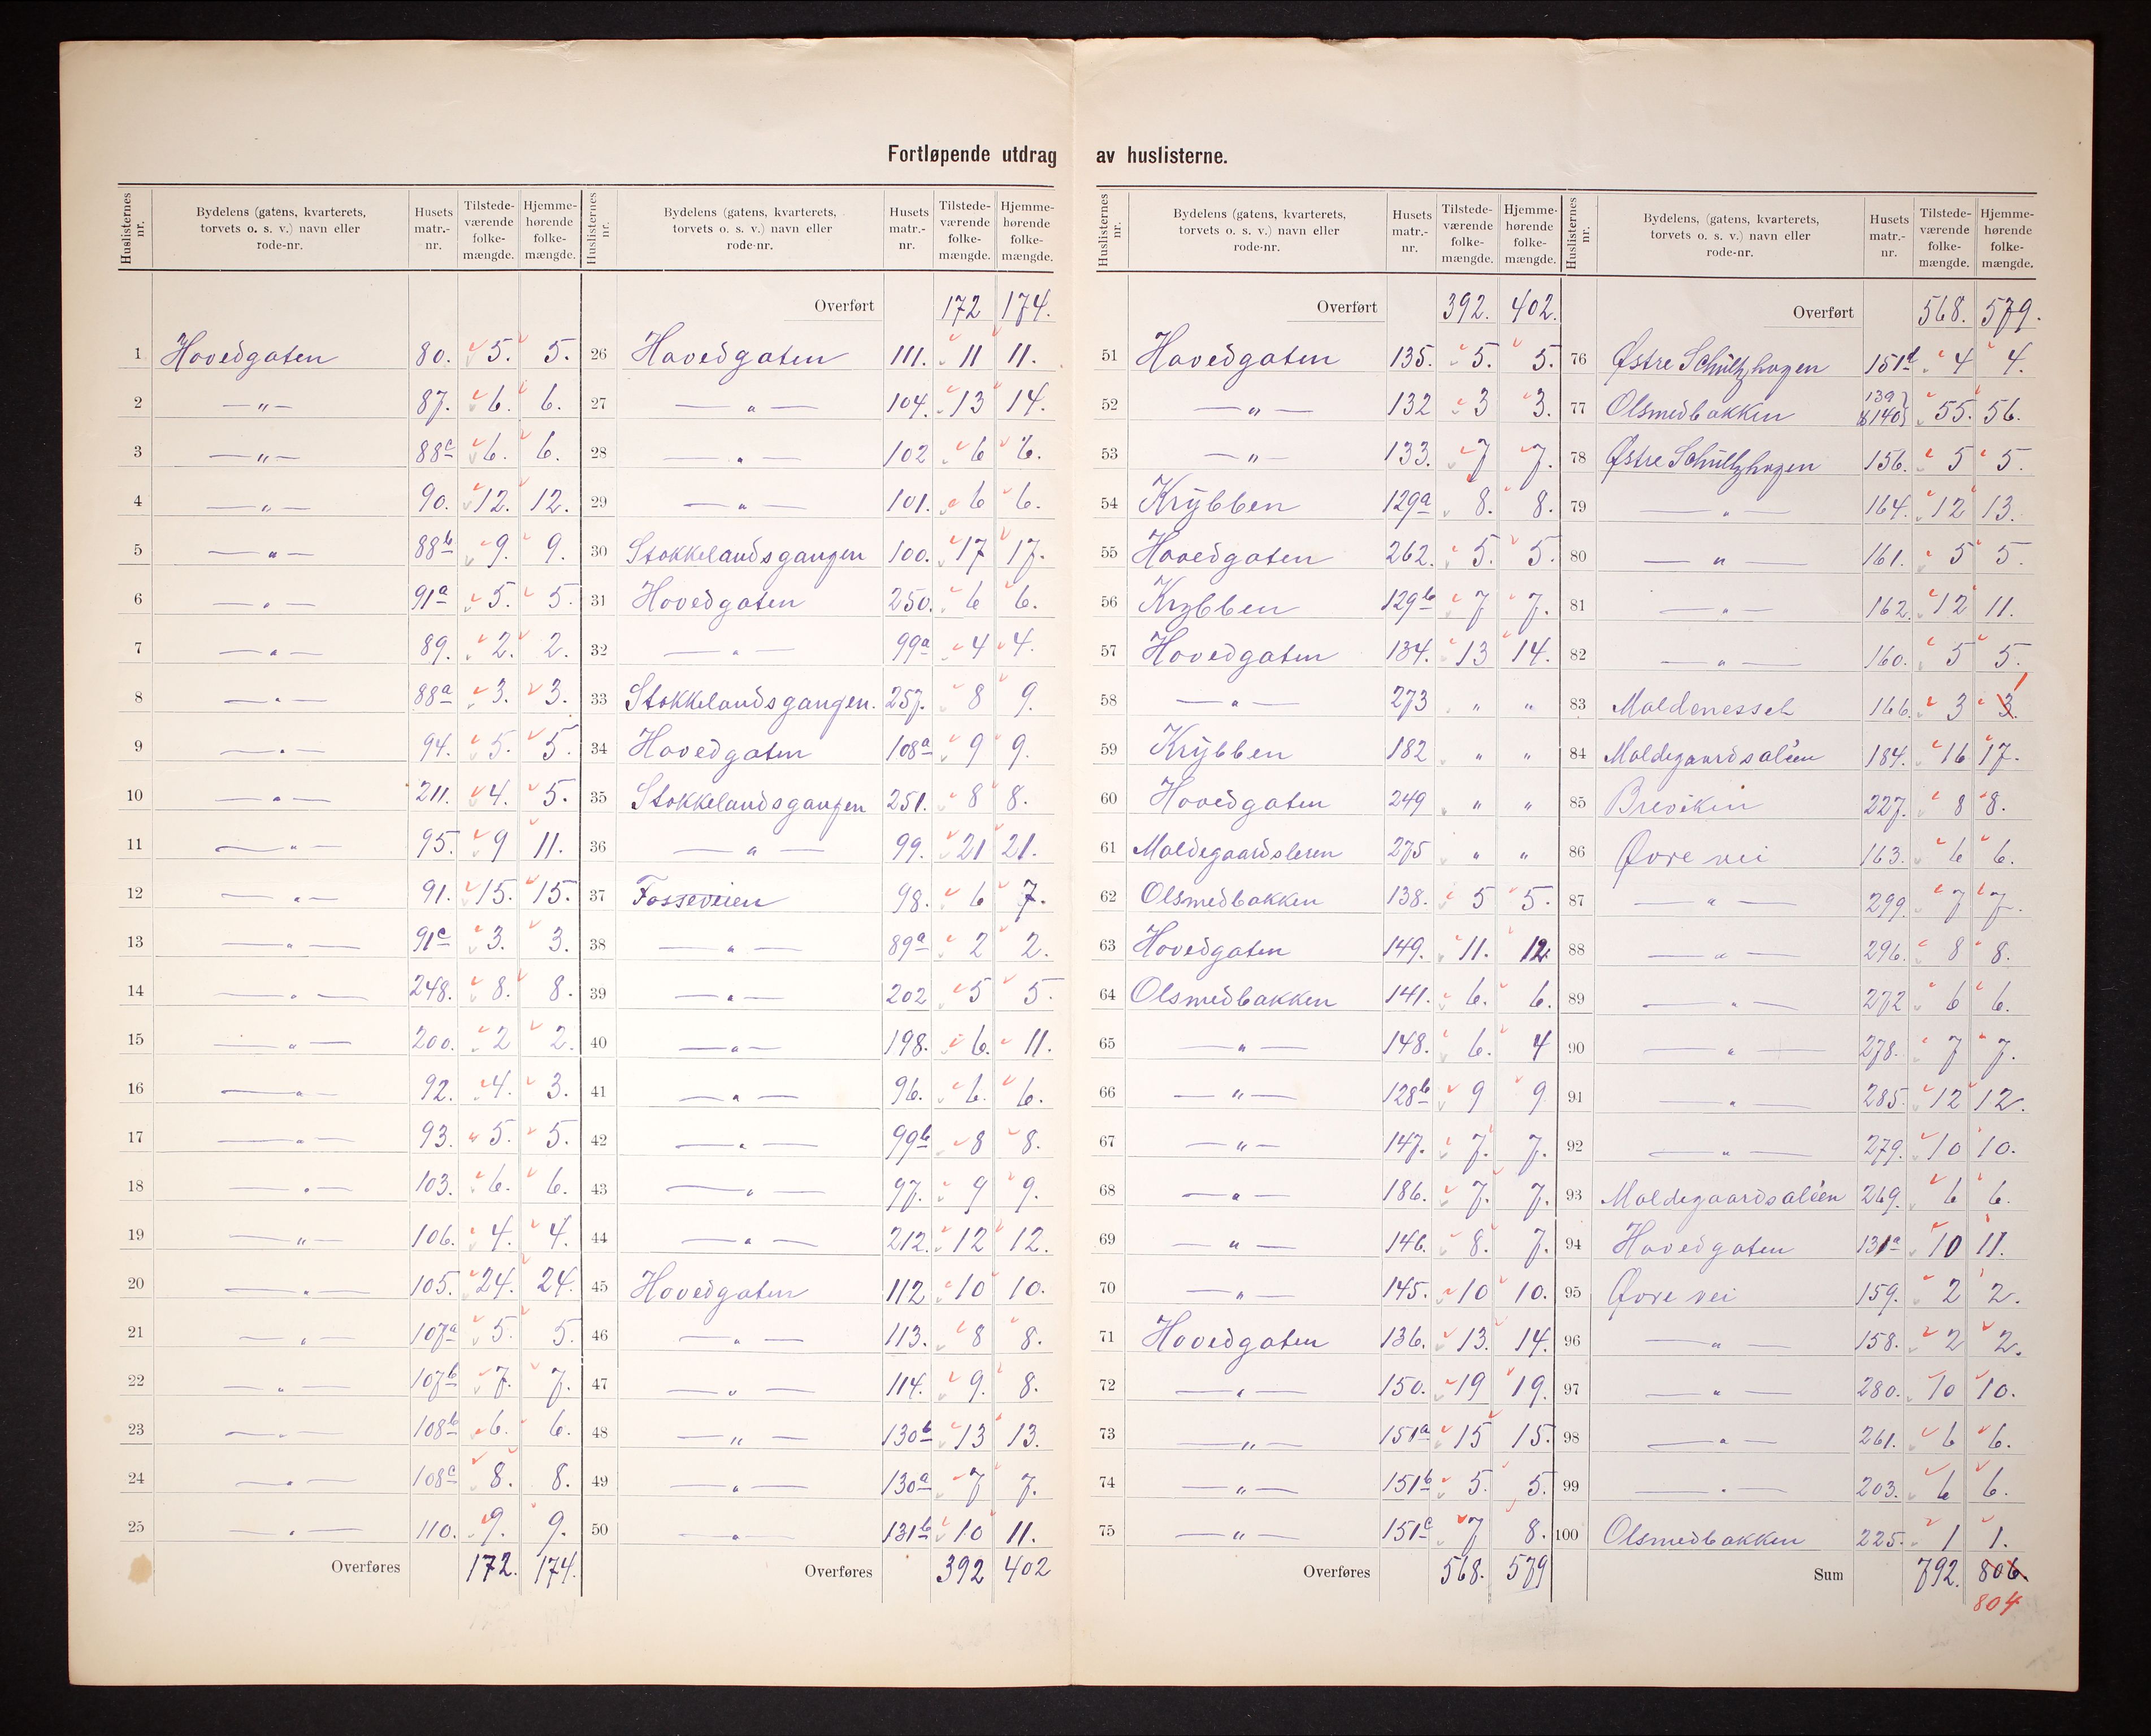 Fortløpende utdrag av huslisterne.
Huslisternes nr. Bydelens (gatens, kvarterets, torvets o. s. v.) navn eller rode-nr. Husets matr.-nr. Tilstede-værende folke-mængde. Hjemme-hørende folke-mængde.
1 Hovedgaten 80. 5. 5.
2 —„— 87. 6. 6.
3 —„— 88c 6. 6.
4 —„— 90. 12. 12.
5 —„— 88b 9. 9.
6 —„— 91a 5. 5.
7 —„— 89. 2. 2.
8 —„— 88a 3. 3.
9 —„— 94. 5. 5.
10 —„— 211. 4. 5.
11 —„— 95. 9 11.
12 —„— 91. 15. 15.
13 —„— 91c 3. 3.
14 —„— 248. 8. 8.
15 —„— 200. 2 2.
16 —„— 92. 4. 3.
17 —„— 93. 5. 5.
18 —„— 103. 6. 6.
19 —„— 106. 4. 4.
20 —„— 105. 24. 24.
21 —„— 107a 5. 5.
22 —„— 107b 7. 7.
23 —„— 108b 6. 6.
24 —„— 108c 8. 8.
25 —„— 110. 9. 9.
Overføres 172. 174.
Huslisternes nr. Bydelens (gatens, kvarterets, torvets o. s. v.) navn eller rode-nr. Husets matr.-nr. Tilstede-værende folke-mængde. Hjemme-hørende folke-mængde.
Overført 172 174.
26 Hovedgaten 111. 11 11.
27 —„— 104. 13 14.
28 —„— 102 6 6.
29 —„— 101. 6 6.
30 Stokkelandsgangen 100. 17 17.
31 Hovedgaten 250. 6 6.
32 —„— 99a 4 4.
33 Stokkelandsgangen. 257. 8 9.
34 Hovedgaten 108a 9 9.
35 Stokkelandsgangen 251. 8 8.
36 —„— 99. 21 21.
37 Fosseveien 98. 6 7.
38 —„— 89a 2 2.
39 —„— 202 5 5.
40 —„— 198. 6. 11.
41 —„— 96. 6. 6.
42 —„— 99b 8 8.
43 —„— 97. 9 9.
44 —„— 212. 12 12.
45 Hovedgaten 112 10 10.
46 —„— 113. 8 8.
47 —„— 114. 9. 8.
48 —„— 130b 13 13.
49 —„— 130a 7 7.
50 —„— 131b 10 11.
Overføres 392 402
Huslisternes nr. Bydelens (gatens, kvarterets, torvets o. s. v.) navn eller rode-nr. Husets matr.-nr. Tilstede-værende folke-mængde. Hjemme-hørende folke-mængde.
Overført 392. 402.
51 Hovedgaten 135. 5. 5.
52 —„— 132 3 3.
53 —„— 133. 7 7.
54 Krÿbben 129a 8. 8.
55 Hovedgaten 262. 5. 5.
56 Krybben 129b 7 7.
57 Hovedgaten 134. 13 14.
58 —„— 273 „ „
59 Krÿbben 182 „ „
60 Hovedgaten 249 „ „
61 Moldegaardsleren 275 „ „
62 Olsmedbakken 138. 5 5.
63 Hovedgaten 149. 11. 12.
64 Olsmedbakken 141. 6. 6.
65 —„— 148. 6. 4
66 —„— 128b 9 9
67 —„— 147. 7. 7.
68 —„— 186. 7. 7.
69 —„— 146. 8. 7.
70 —„— 145. 10 10.
71 Hovedgaten 136. 13. 14.
72 —„— 150. 19 19.
73 —„— 151a 15 15.
74 —„— 151b 5. 5.
75 —„— 151c 7 8.
Overføres 568. 579
Huslisternes nr. Bydelens, (gatens, kvarterets, torvets o. s. v.) navn eller rode-nr. Husets matr.-nr. Tilstede-værende folke-mængde. Hjemme-hørende folke-mængde.
Overført 568. 579.
76 Østre Schultzhagen 151d 4 4.
77 Olsmedbakken 139 & 140 55. 56.
78 Østre Schultzhagen 156. 5 5.
79 —„— 164. 12 13.
80 —„— 161. 5 5.
81 —„— 162. 12 11.
82 —„— 160. 5 5.
83 Moldenesset 166. 3 3. 1
84 Moldegaardsaléen 184. 16 17.
85 Breviken 227. 8 8.
86 Øvre vei 163. 6 6.
87 —„— 299. 7 7.
88 —„— 296. 8 8.
89 —„— 272 6 6.
90 —„— 278. 7 7.
91 —„— 285. 12 12.
92 —„— 279. 10 10.
93 Moldegaardsaléen 269. 6 6.
94 Hovedgaten 131a 10 11.
95 Øvre vei 159. 2 2.
96 —„— 158. 2 2.
97 —„— 280. 10 10.
98 —„— 261. 6 6.
99 —„— 203. 6 6.
100 Olsmedbakken 225. 1 1.
Sum 792. 806.
804